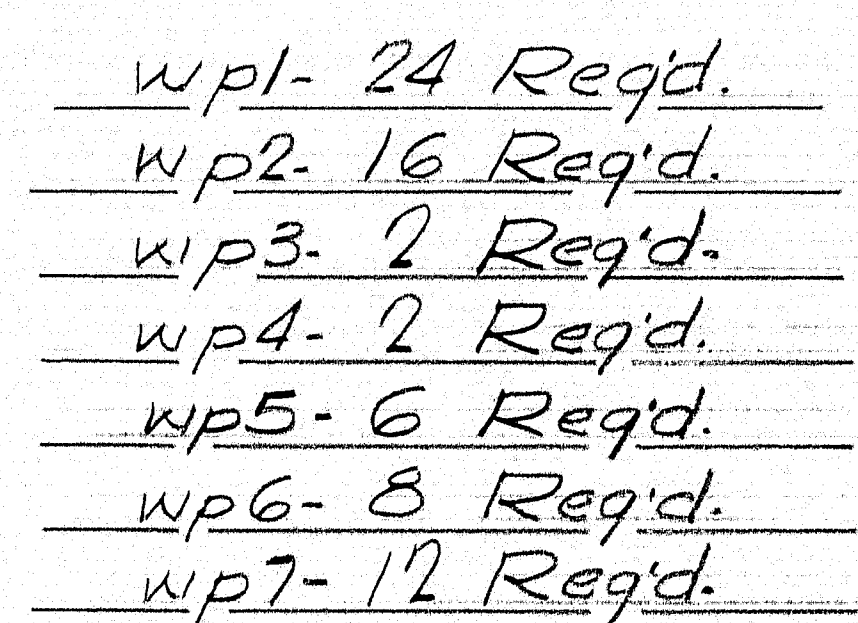 wp1- 24 Req'd.
wp2- 16 Req'd.
wp3- 2 Req'd.
wp4- 2 Req'd.
wp5- 6 Req'd.
wp6- 8 Req'd.
wp7- 12 Req'd.